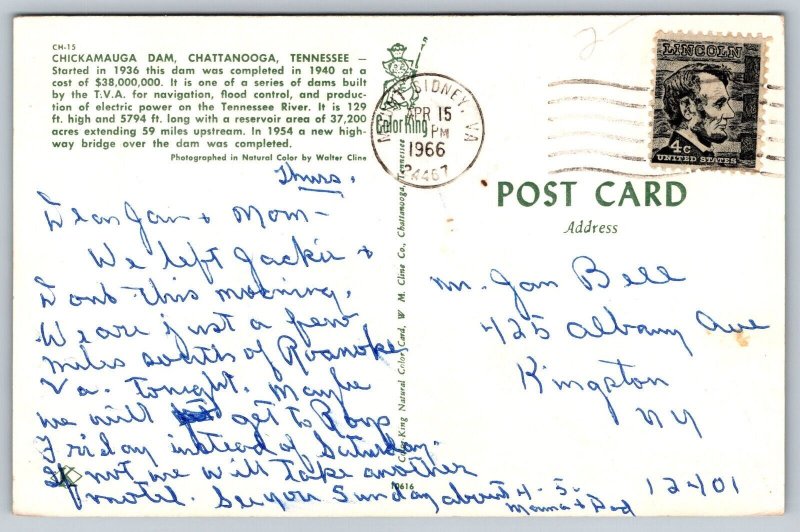 CH-15
CHICKAMAUGA DAM, CHATTANOOGA, TENNESSEE —
Started in 1936 this dam was completed in 1940 at a
cost of $38,000,000. It is one of a series of dams built
by the T.V.A. for navigation, flood control, and produc-
tion of electric power on the Tennessee River. It is 129
ft. high and 5794 ft. long with a reservoir area of 37,200
acres extending 59 miles upstream. In 1954 a new high-
way bridge over the dam was completed.
Photographed in Natural Color by Walter Cline
Thurs.
Dear Jan + Mom —
We left Jackie +
Dont this morning.
We are just a few
miles south of Roanoke,
Va. tonight. Maybe
we will get to
Friday instead of Saturday.
If not we will take another
motel. See you Sunday about 4-5.
Mama + Dad
ColorKing
Color-King Natural Color Card, W. M. Cline Co., Chattanooga, Tennessee
10616
SIDNEY, VA
APR 15
PM
1966
24467
LINCOLN
4c
UNITED STATES
POST CARD
Address
Mr. Jan Bell
425 Albany Ave
Kingston
NY
12401